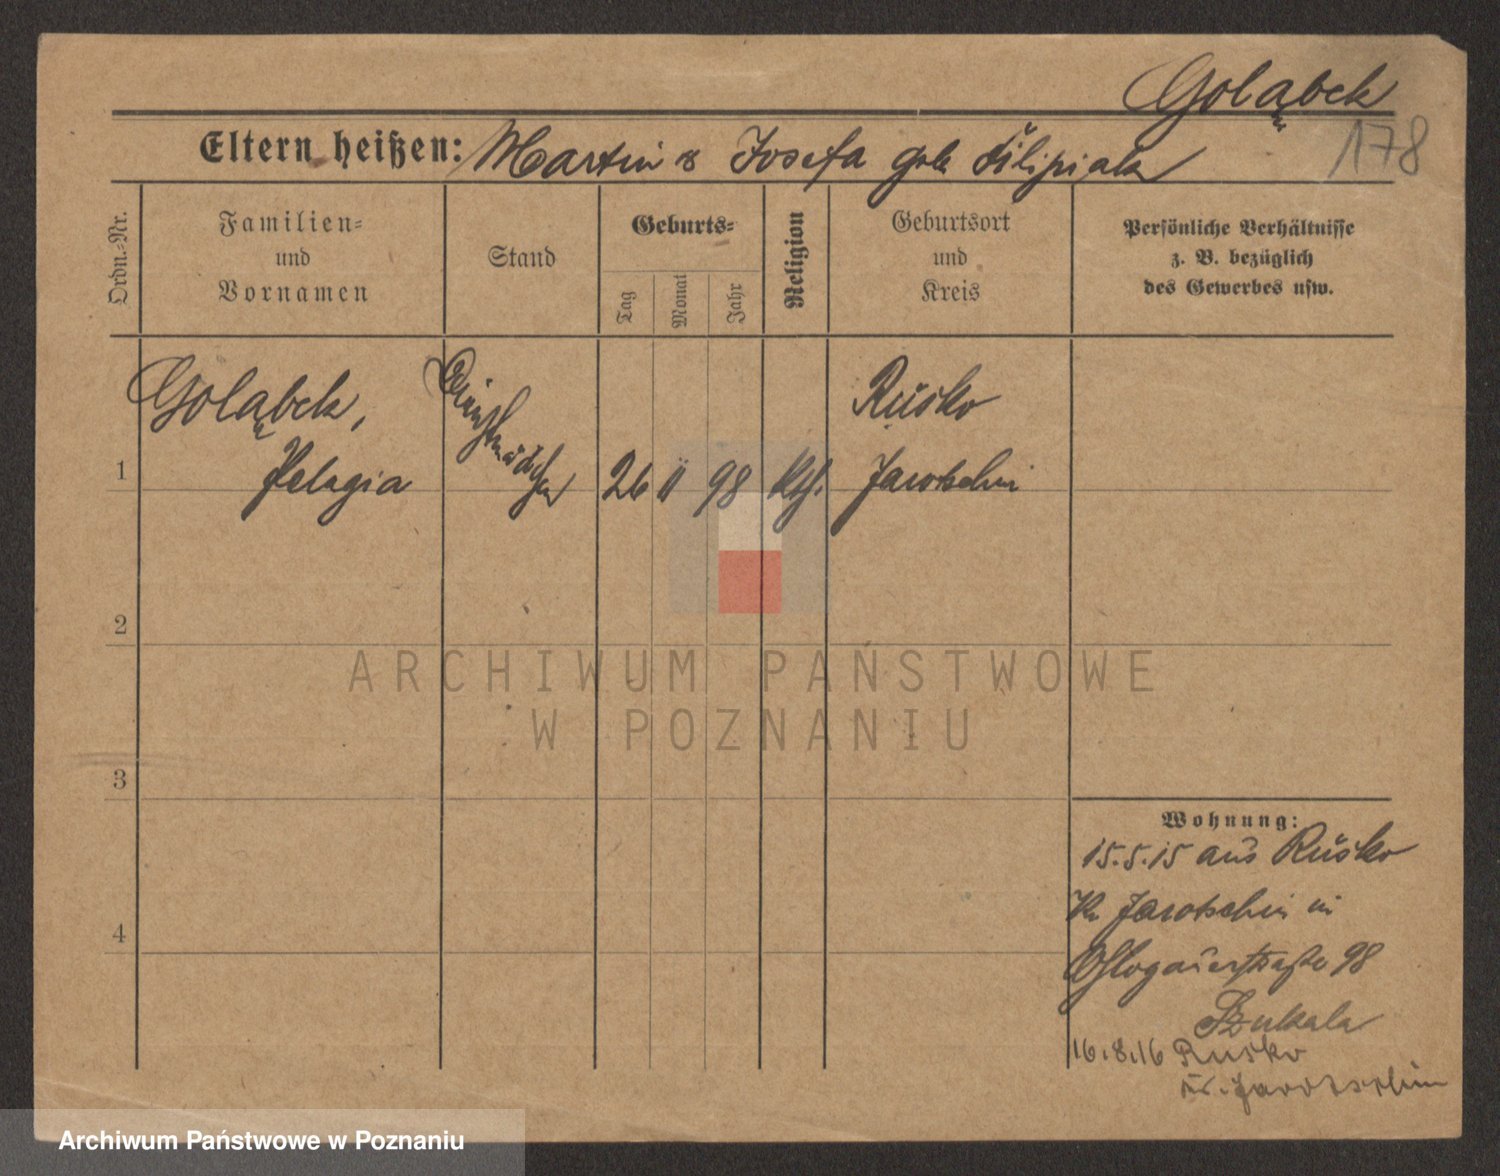 Goląbek
178
Eltern heißen: Martin & Josefa geb Filipiak
Ordn.=Nr.
Familien=
und
Vornamen
Stand
Geburts=
Tag
Monat
Jahr
Religion
Geburtsort
und
Kreis
Persönliche Verhältnisse
z. B. bezüglich
des Gewerbes usw.
1
Goląbek,
Pelagia
Dienstmädchen
26 II 98 kth.
Rusko
Jarotschin
2
3
4
Wohnung:
15.5.15 aus Rusko
Kr Jarotschin in
Glogauerstraße 98
Szukala
16.8.16 Rusko
Kr. Jarotschin
ARCHIWUM PAŃSTWOWE
W POZNANIU
Archiwum Państwowe w Poznaniu